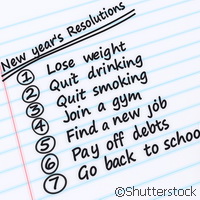 New year's Resolutions
1 Lose weight
2 Quit drinking
3 Quit smoking
4 Join a gym
5 Find a new job
6 Pay off debts
7 Go back to schoo
©Shutterstock